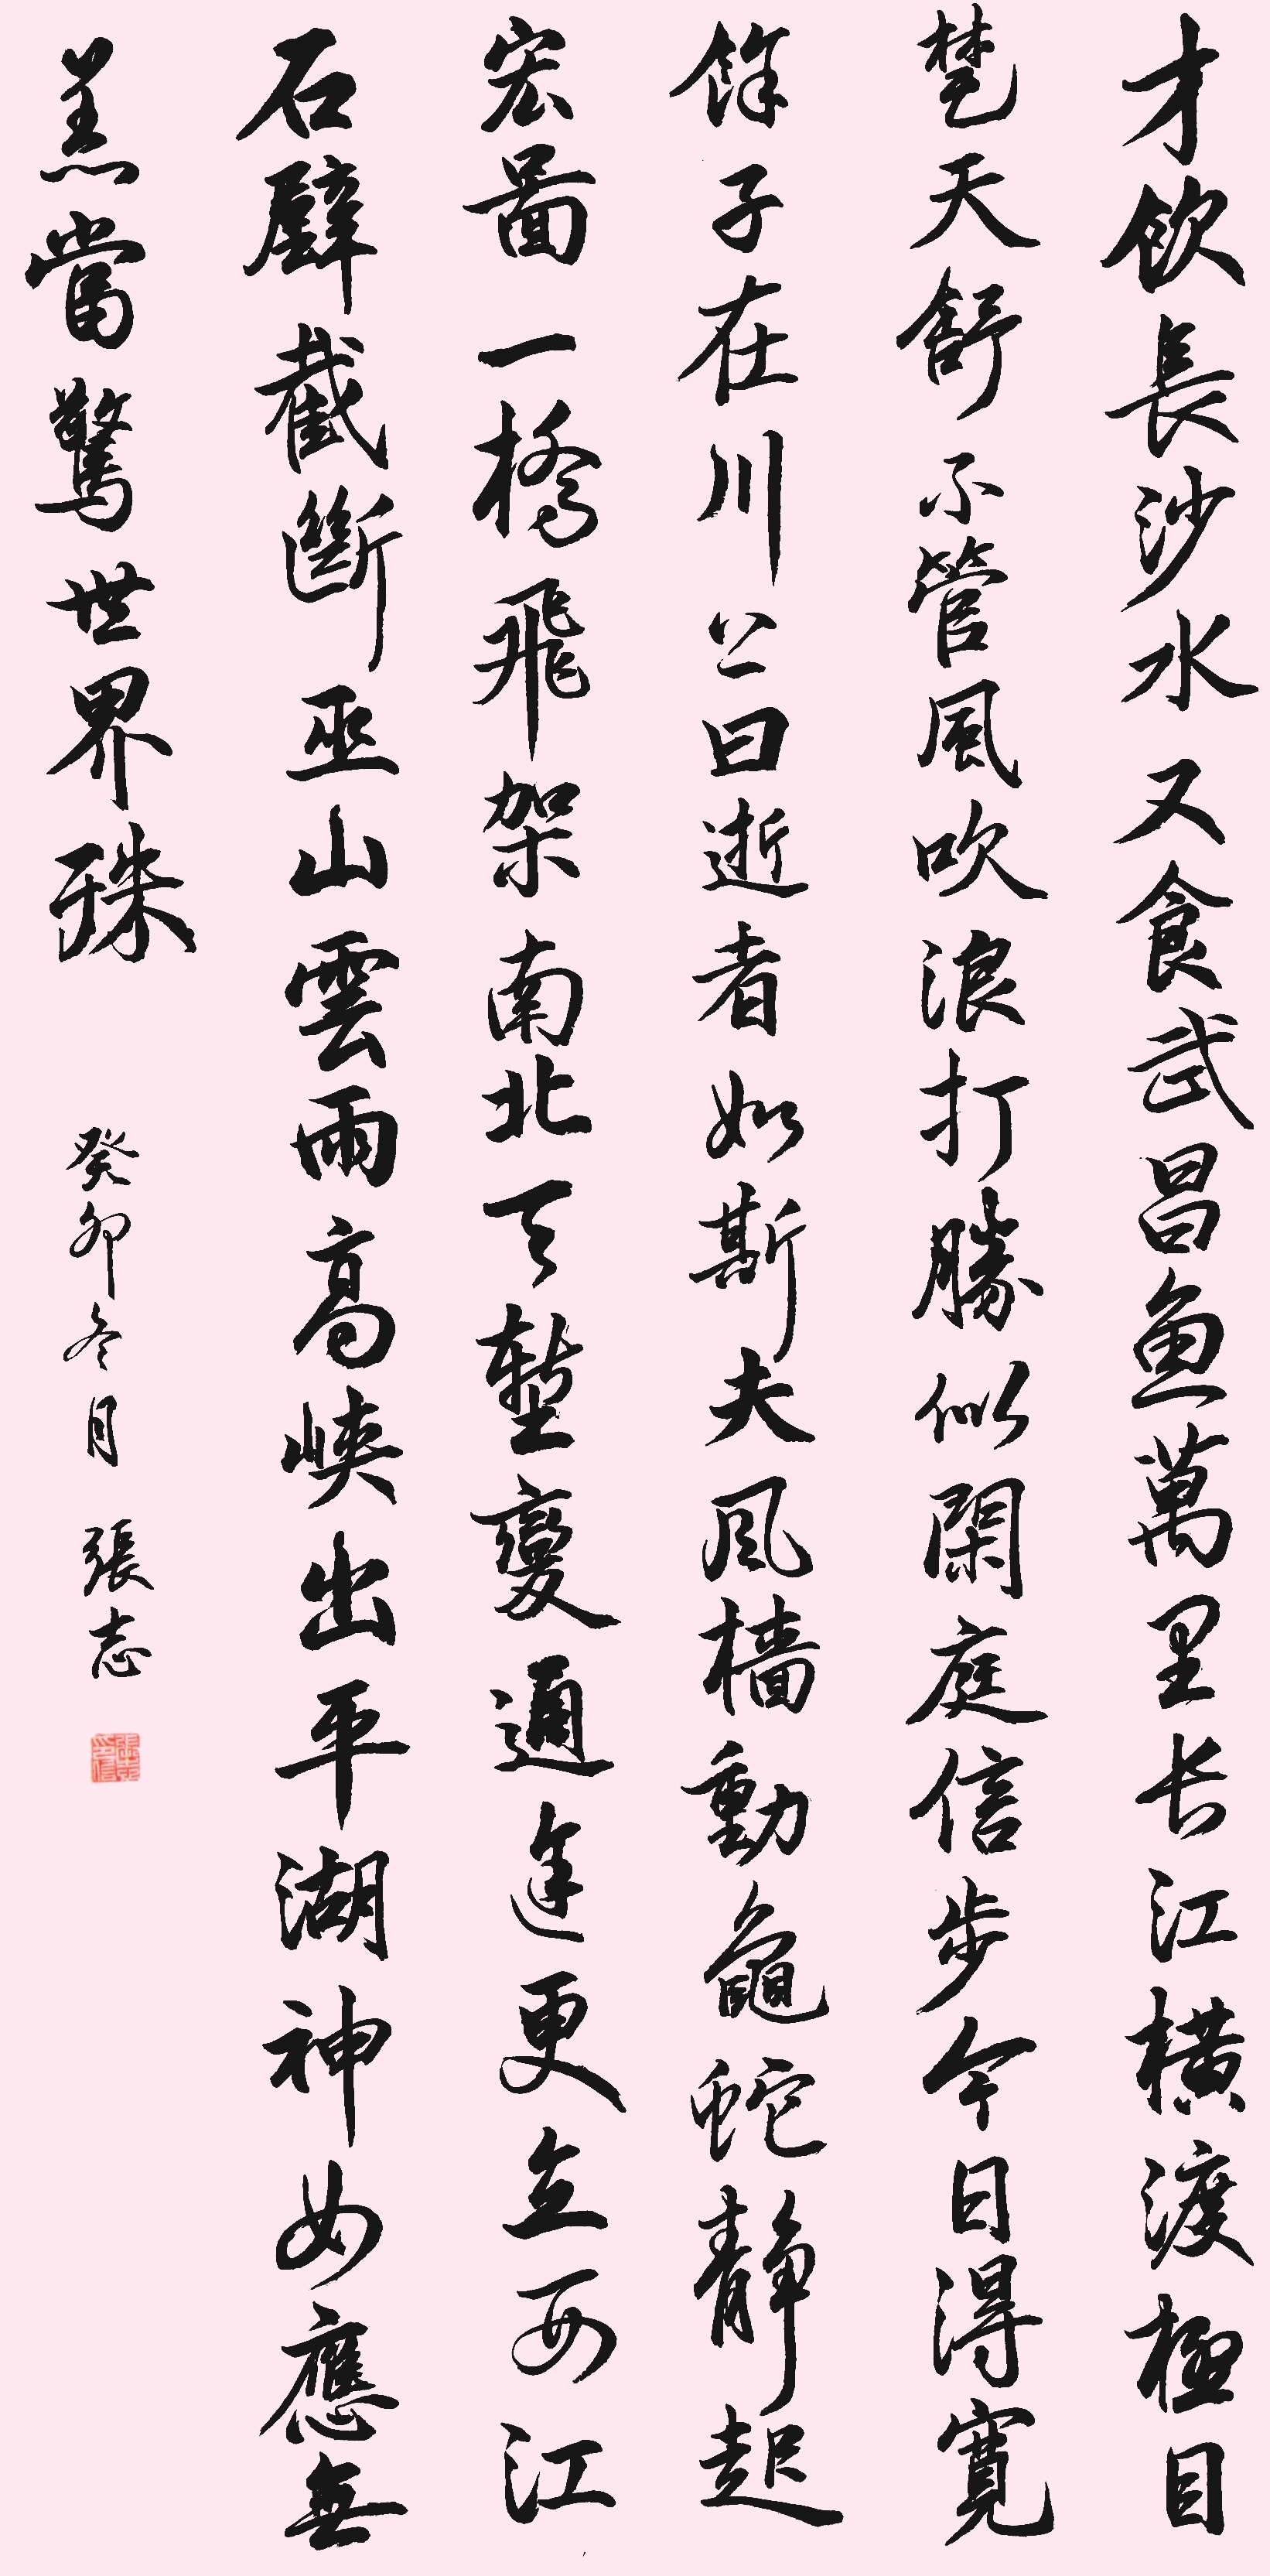 才飲長沙水又食武昌魚萬里长江橫渡極目
楚天舒不管風吹浪打勝似閑庭信步今日得寬
餘子在川上曰逝者如斯夫风檣動龜蛇靜起
宏圖一橋飛架南北天塹變邇途更立西江
石壁截斷巫山雲雨高峽出平湖神女應無
恙當驚世界殊
癸卯冬月 張志